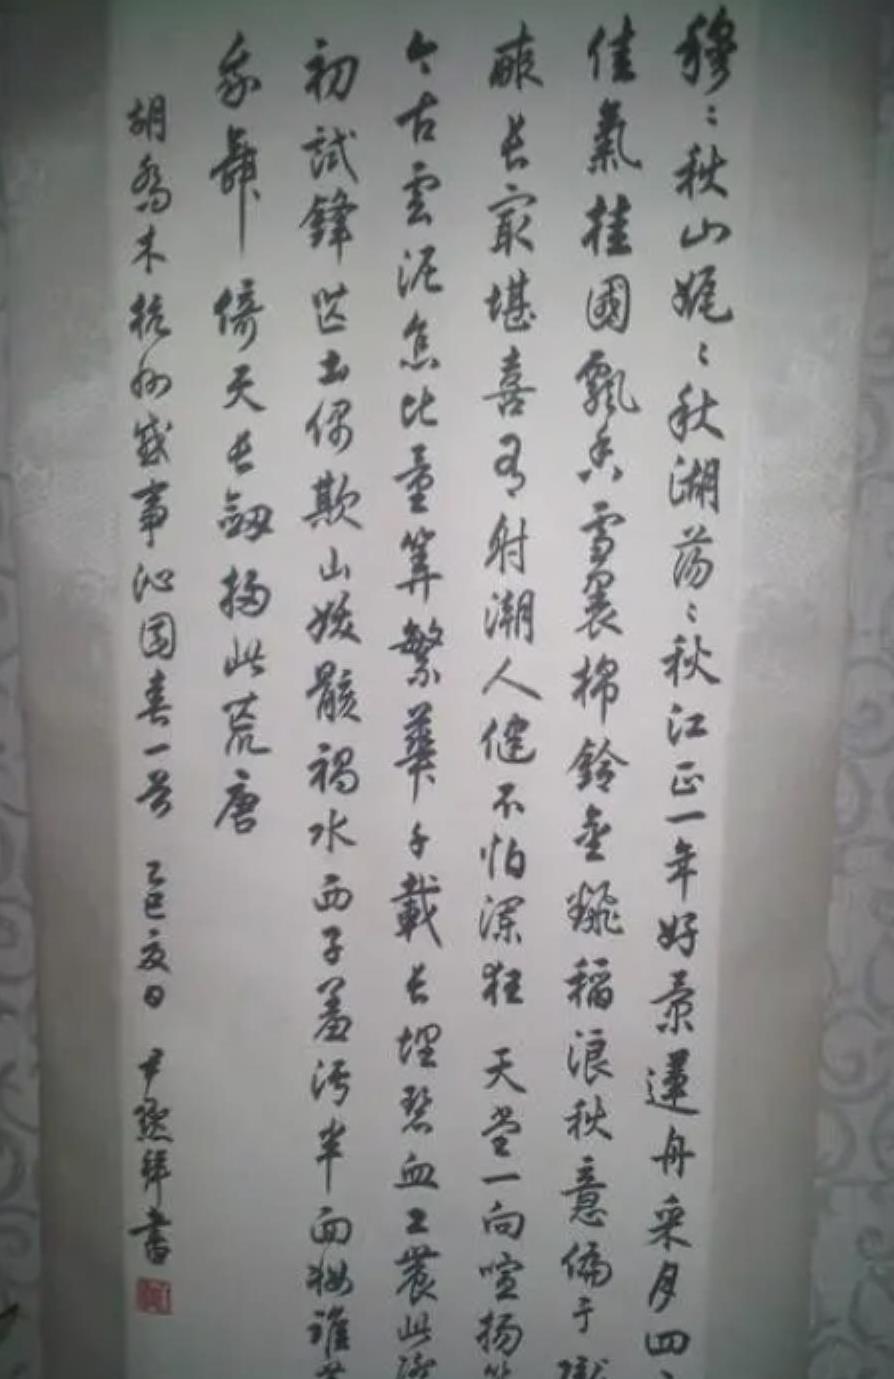 穆々秋山娓々秋湖荡々秋江正一年好景莲舟采月四
佳气桂国飘香雪裹棉铃金翻稻浪秋意偏于
酿长最堪喜有射潮人健不怕澜狂 天堂一向喧扬
今古云泥怎比量算繁华千载长埋碧血工农此
初试锋芒土偶欺山妖骸祸水西子羞污半面妆谁
我舞 倚天长剑扫此荒唐
胡乔木杭州感事沁园春一首 乙巳夏日 尹 书